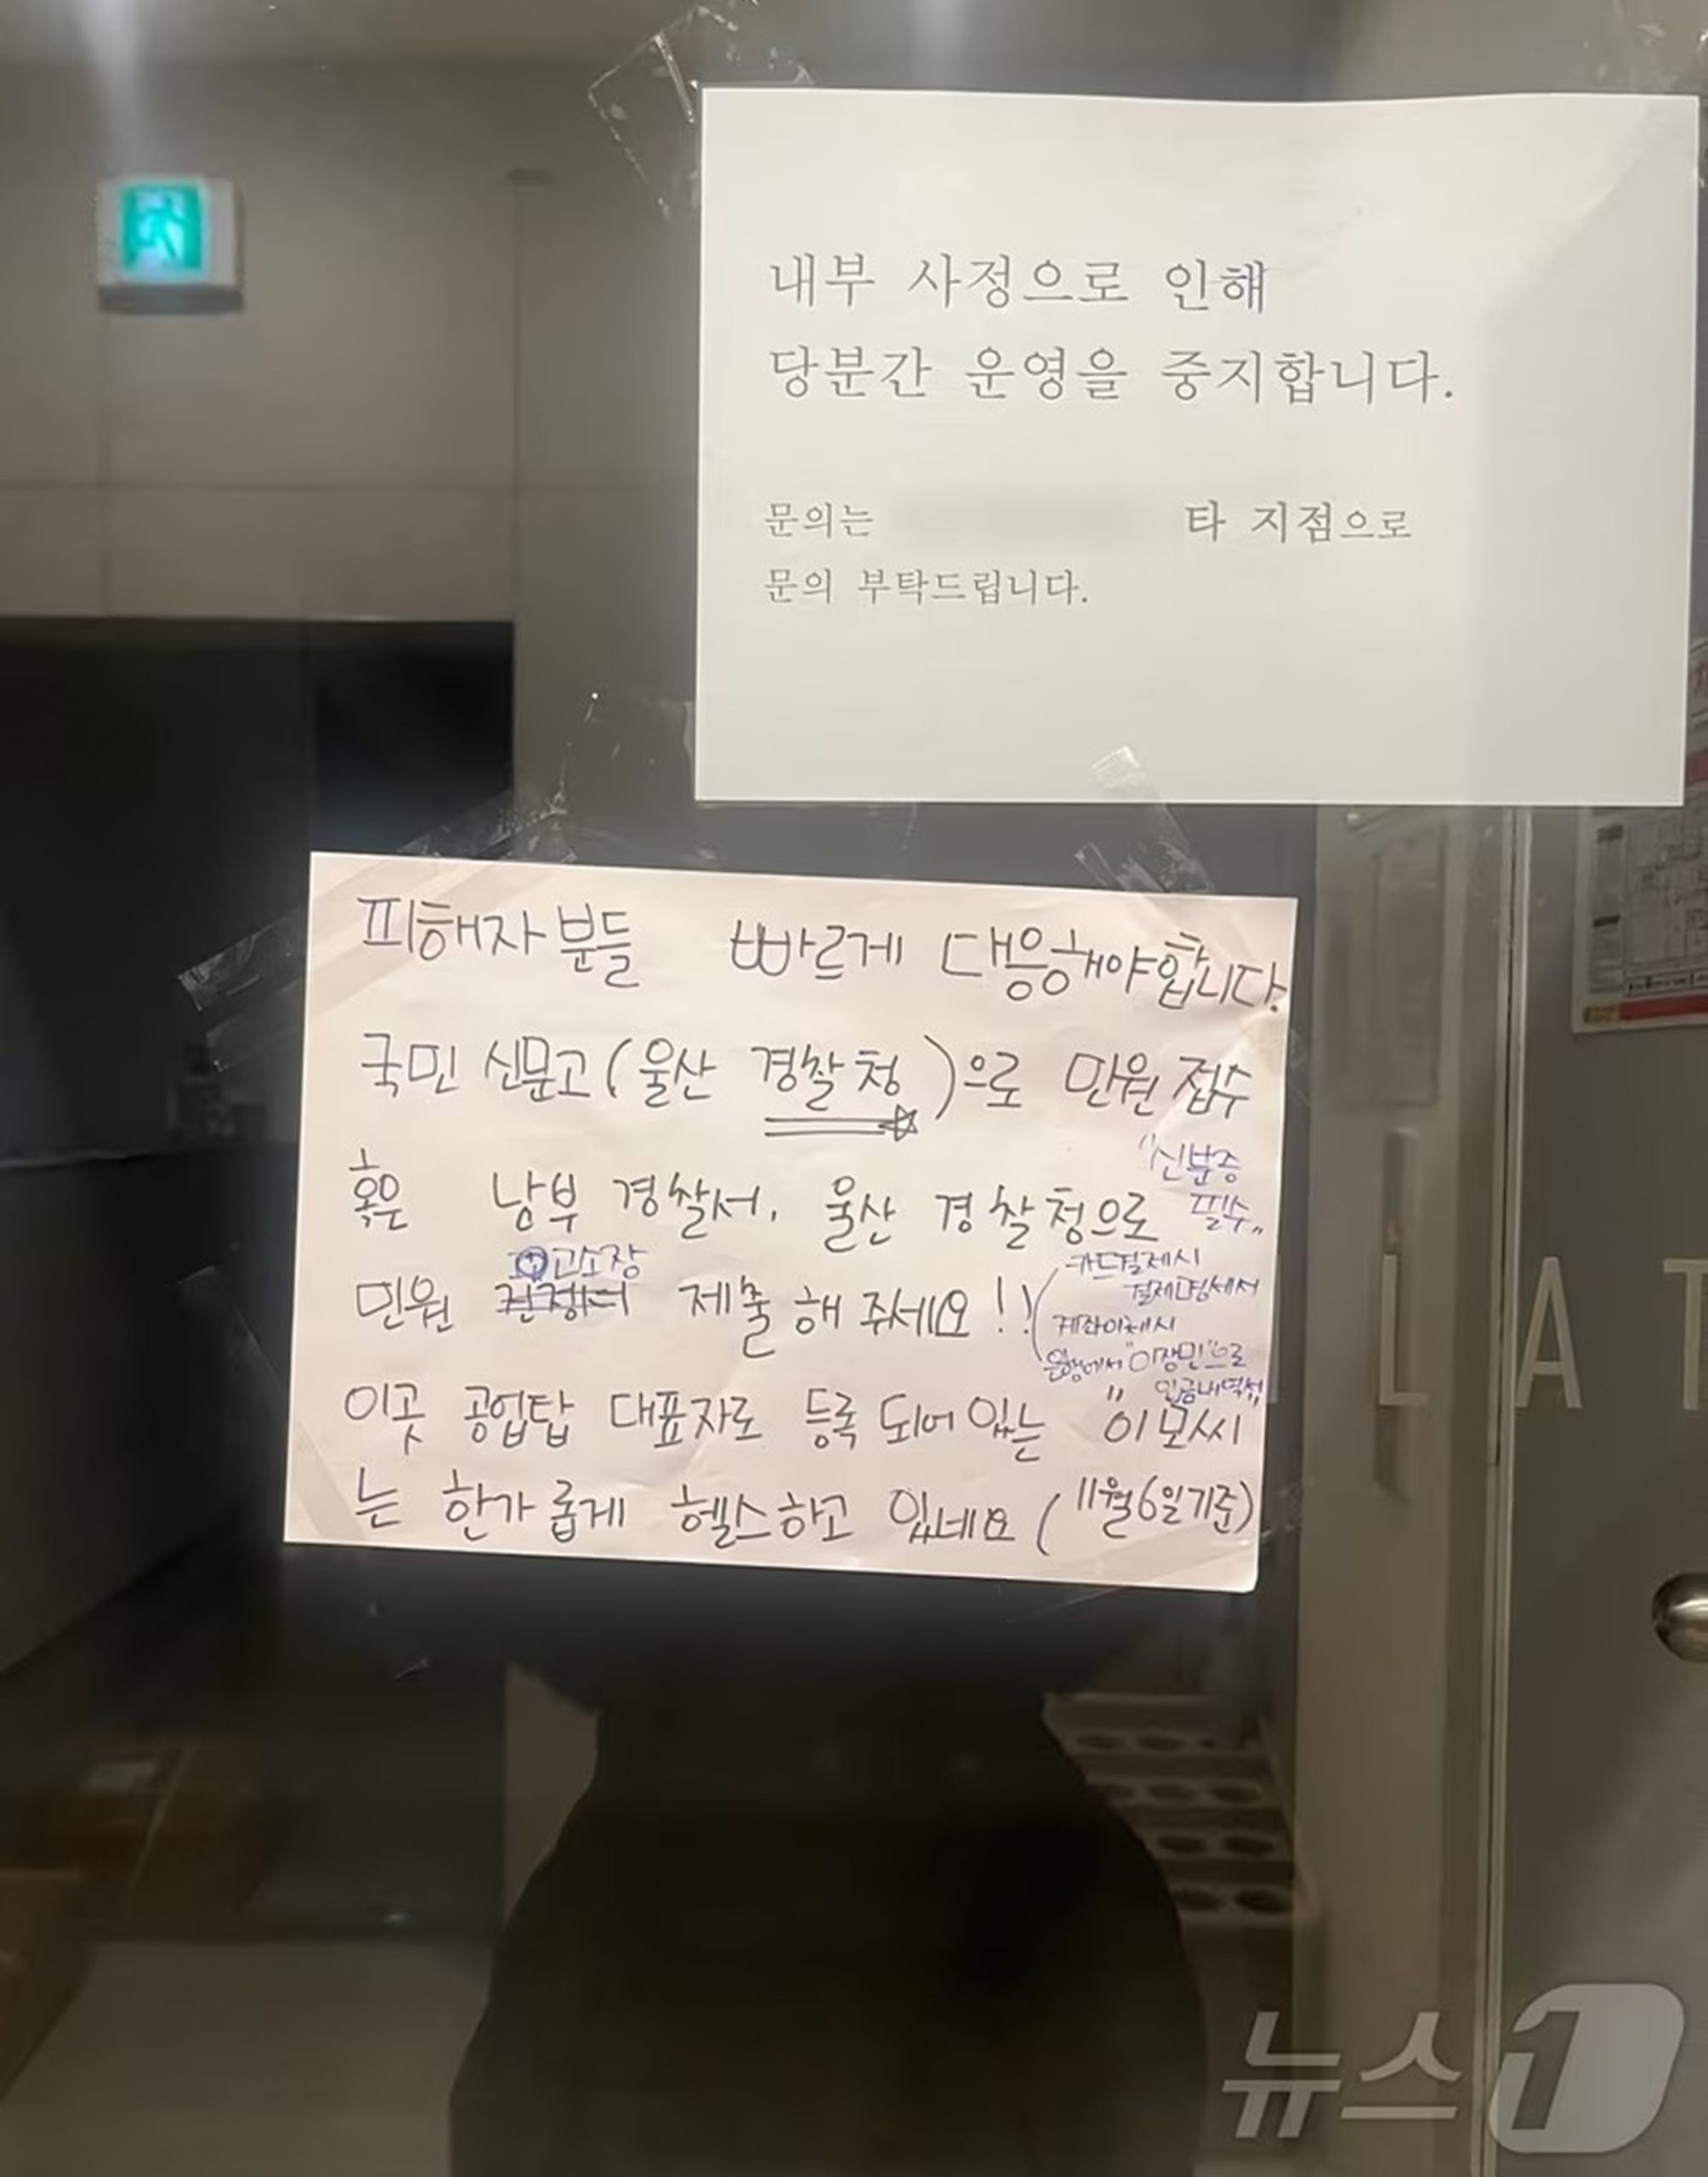 내부 사정으로 인해
당분간 운영을 중지합니다.
문의는 타 지점으로
문의 부탁드립니다.
피해자분들 빠르게 대응해야합니다.
국민 신문고(울산 경찰청)으로 민원 접수
혹은 남부 경찰서, 울산 경찰청으로
"신분증
필수"
고소장
민원 제출해 주세요!!
카드결제시
결제명세서
계좌이체시
은행에서 "이장민"으로
입금내역서
이곳 공업탑 대표자로 등록 되어 있는 "이모씨
는 한가롭게 헬스하고 있네요 (11월6일기준)
LAT
뉴스1